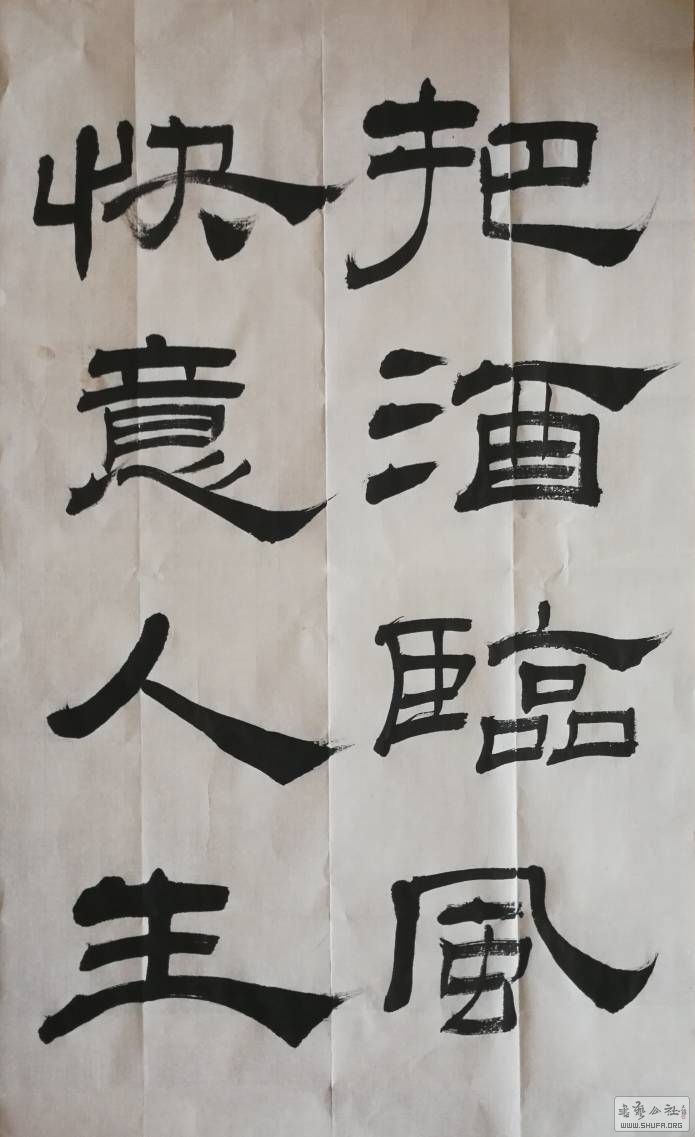 把酒臨風
快意人生
WWW.SHUFA.ORG